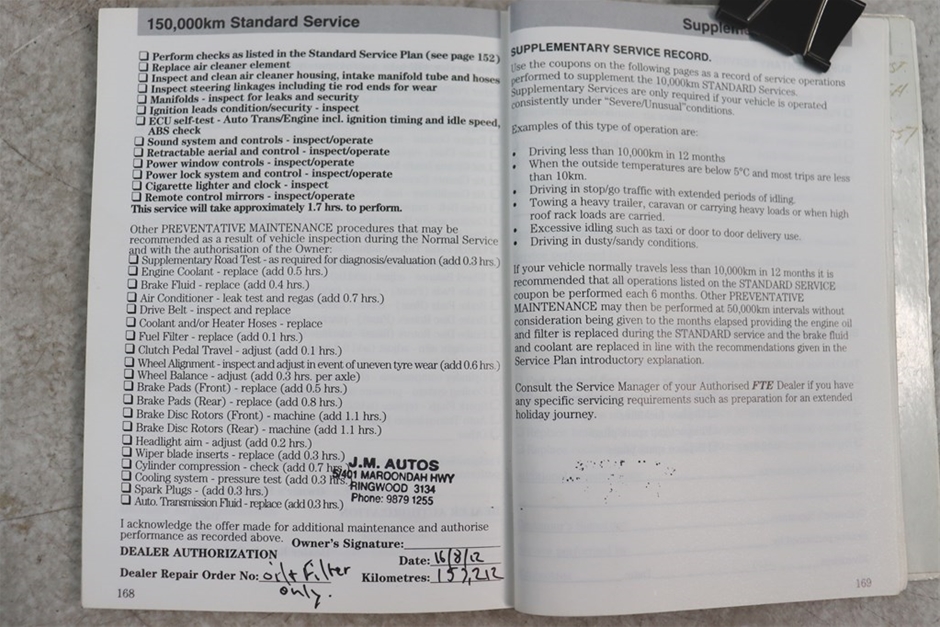 150,000km Standard Service
❏ Perform checks as listed in the Standard Service Plan (see page 152)
❏ Replace air cleaner element
❏ Inspect and clean air cleaner housing, intake manifold tube and hoses
❏ Inspect steering linkages including tie rod ends for wear
❏ Manifolds - inspect for leaks and security
❏ Ignition leads condition/security - inspect
❏ ECU self-test - Auto Trans/Engine incl. ignition timing and idle speed,
ABS check
❏ Sound system and controls - inspect/operate
❏ Retractable aerial and control - inspect/operate
❏ Power window controls - inspect/operate
❏ Power lock system and control - inspect/operate
❏ Cigarette lighter and clock - inspect
❏ Remote control mirrors - inspect/operate
This service will take approximately 1.7 hrs. to perform.
Other PREVENTATIVE MAINTENANCE procedures that may be
recommended as a result of vehicle inspection during the Normal Service
and with the authorisation of the Owner:
❏ Supplementary Road Test - as required for diagnosis/evaluation (add 0.3 hrs.)
❏ Engine Coolant - replace (add 0.5 hrs.)
❏ Brake Fluid - replace (add 0.4 hrs.)
❏ Air Conditioner - leak test and regas (add 0.7 hrs.)
❏ Drive Belt - inspect and replace
❏ Coolant and/or Heater Hoses - replace
❏ Fuel Filter - replace (add 0.1 hrs.)
❏ Clutch Pedal Travel - adjust (add 0.1 hrs.)
❏ Wheel Alignment - inspect and adjust in event of uneven tyre wear (add 0.6 hrs.)
❏ Wheel Balance - adjust (add 0.3 hrs. per axle)
❏ Brake Pads (Front) - replace (add 0.5 hrs.)
❏ Brake Pads (Rear) - replace (add 0.8 hrs.)
❏ Brake Disc Rotors (Front) - machine (add 1.1 hrs.)
❏ Brake Disc Rotors (Rear) - machine (add 1.1 hrs.)
❏ Headlight aim - adjust (add 0.2 hrs.)
❏ Wiper blade inserts - replace (add 0.3 hrs.)
❏ Cylinder compression - check (add 0.7 hrs.)
❏ Cooling system - pressure test (add 0.3 hrs.)
❏ Spark Plugs - (add 0.3 hrs.)
❏ Auto. Transmission Fluid - replace (add 0.3 hrs.)
J.M. AUTOS
5/401 MAROONDAH HWY
RINGWOOD 3134
Phone: 9879 1255
I acknowledge the offer made for additional maintenance and authorise
performance as recorded above. Owner's Signature:
DEALER AUTHORIZATION Date: 16/8/12
Dealer Repair Order No: oil + Filter Kilometres: 157,212
only.
168
Supplem
SUPPLEMENTARY SERVICE RECORD.
Use the coupons on the following pages as a record of service operations
performed to supplement the 10,000km STANDARD Services.
Supplementary Services are only required if your vehicle is operated
consistently under "Severe/Unusual" conditions.
Examples of this type of operation are:
• Driving less than 10,000km in 12 months
• When the outside temperatures are below 5°C and most trips are less
than 10km.
• Driving in stop/go traffic with extended periods of idling.
• Towing a heavy trailer, caravan or carrying heavy loads or when high
roof rack loads are carried.
• Excessive idling such as taxi or door to door delivery use.
• Driving in dusty/sandy conditions.
If your vehicle normally travels less than 10,000km in 12 months it is
recommended that all operations listed on the STANDARD SERVICE
coupon be performed each 6 months. Other PREVENTATIVE
MAINTENANCE may then be performed at 50,000km intervals without
consideration being given to the months elapsed providing the engine oil
and filter is replaced during the STANDARD service and the brake fluid
and coolant are replaced in line with the recommendations given in the
Service Plan introductory explanation.
Consult the Service Manager of your Authorised FTE Dealer if you have
any specific servicing requirements such as preparation for an extended
holiday journey.
169